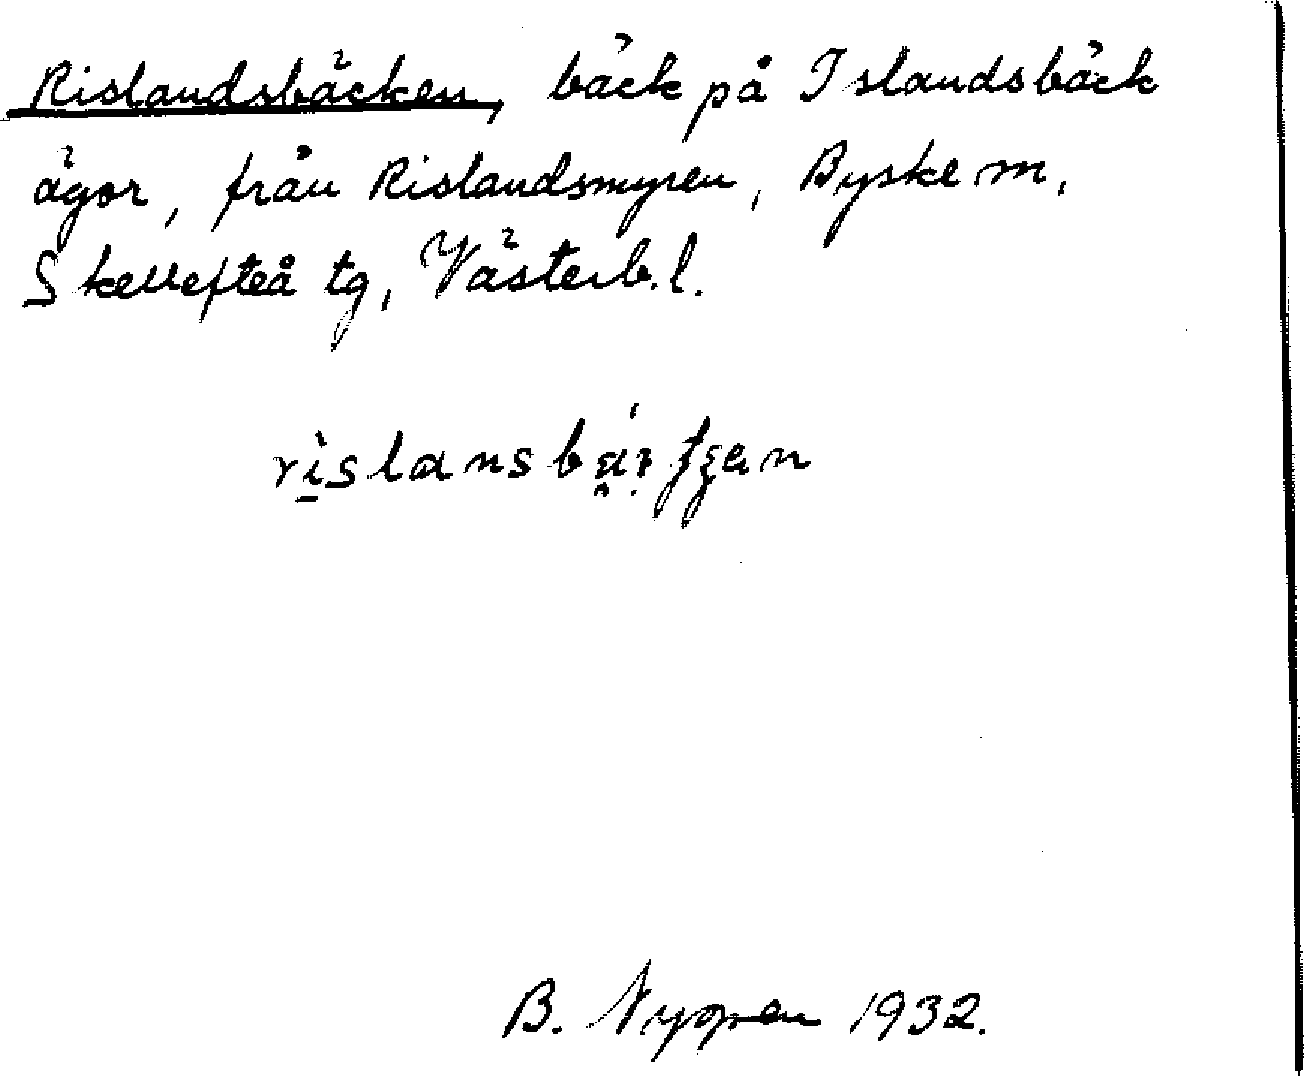 Rislandsbäcken, bäck på Islandsbäck
ägor, från Rislandsmyren, Byske m,
Skellefteå tg, Västerb.l.
B. Nyppen 1932.